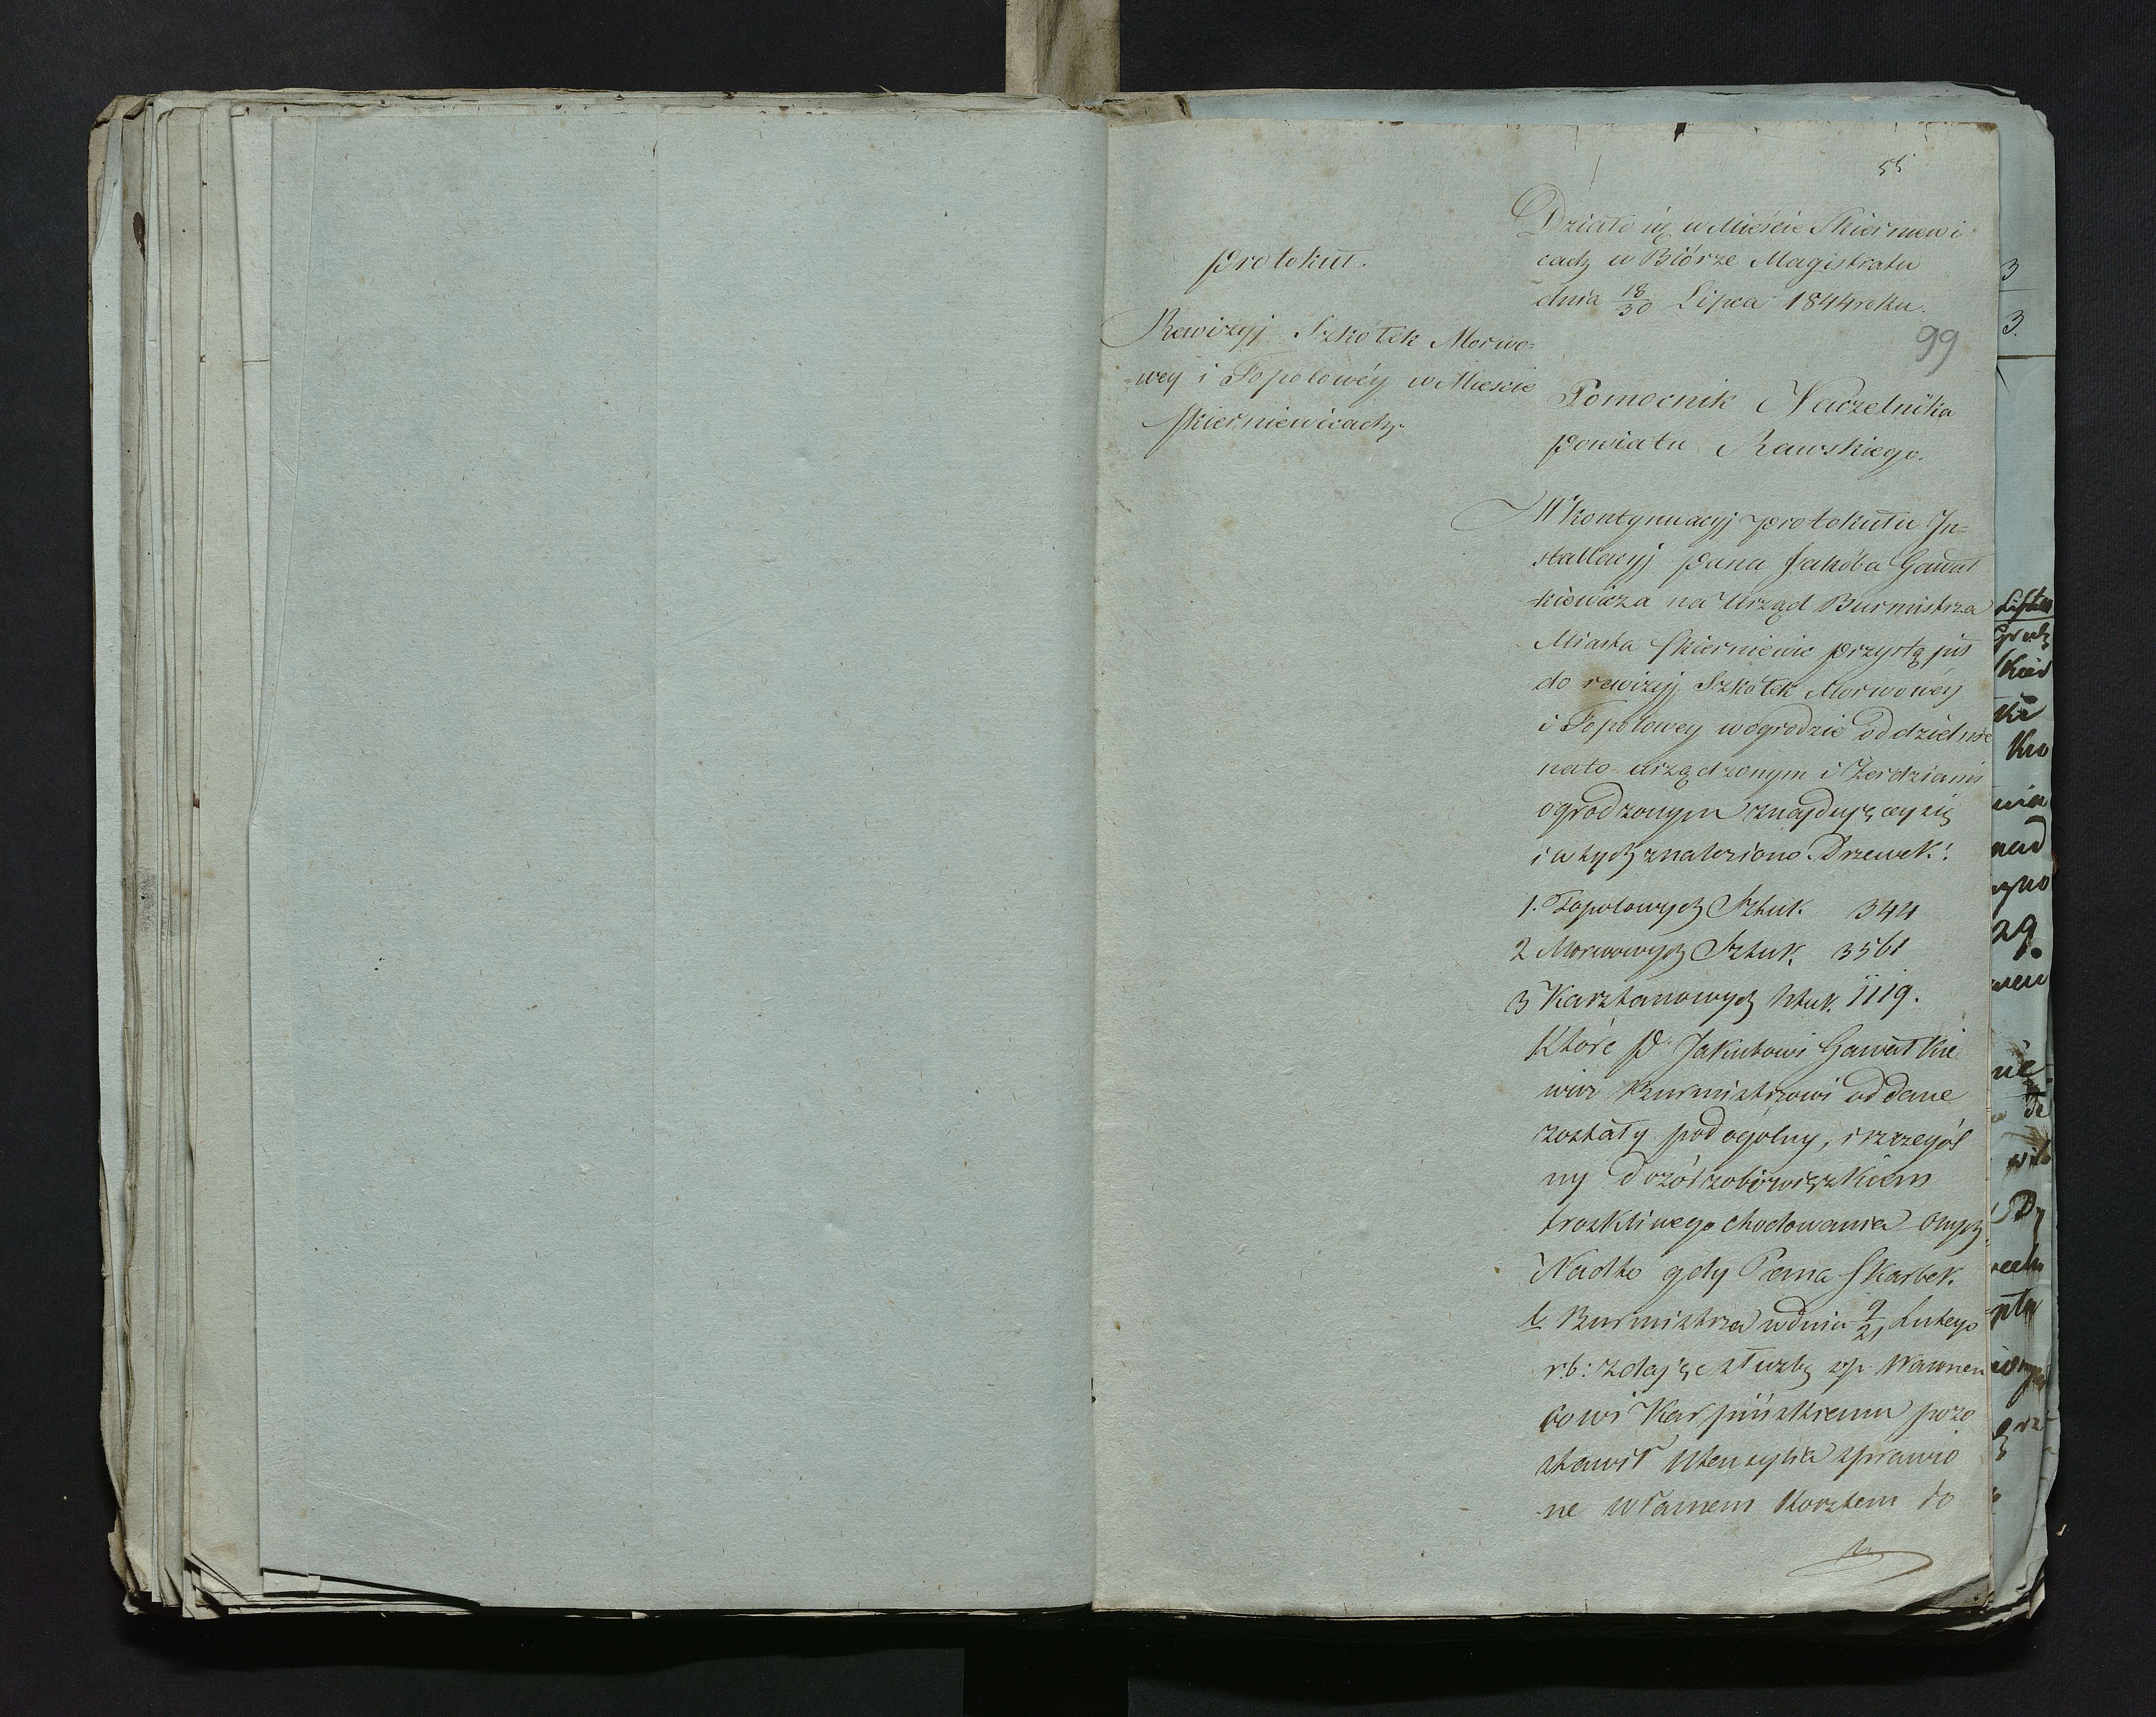 55
Protokuł.
Rewizyj Szkółek Morwo=
=wey i Topolowéy w Miescie
Skierniewicach.
Działo się w Mieście Skierniewi
cach w Biórze Magistratu
dnia 18/30 Lipca 1844 roku.
99
Pomocnik Naczelnika
Powiatu Rawskiego.
W kontynuacyj protokułu In=
stallacyj Pana Jakóba Gawał
kiewicza na Urząd Burmistrza
Miasta Skierniewic przystąpił
do rewizyj Szkółek Morwowéy
i Topolowey w ogrodzie oddzielnie
na to urządzonym i Żerdziami
ogrodzonym znajdującey się
i w tych znaleziono Drzewek:
1. Topolowych Sztuk. 344
2 Morwowych Sztuk. 3561
3 Kasztanowych Sztuk. 1119.
Które P. Jakubowi Gawałkie
wicz Burmistrzowi oddane
zostały pod ogólny, i szczegól
ny dozór z obowiązkiem
troskliwego chodowania onych
Nadto gdy Pana Skarbek
b Burmistrza w dnia 9/21 Lutego
r.b: zdając służbę zp. Wawrzeń
cowi Karpińskiemu pozo
stawił Utensylia sprawio
ne własnem kosztem do
3
3.
nad
29.